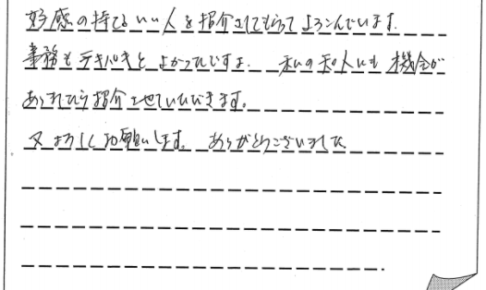 好感の持てるいい人を紹介してもらってよろこんでいます。
事務もテキパキとよかったですよ。私の知人にも機会が
あったら紹介させていただきます。
又よろしくお願いします。ありがとうございました